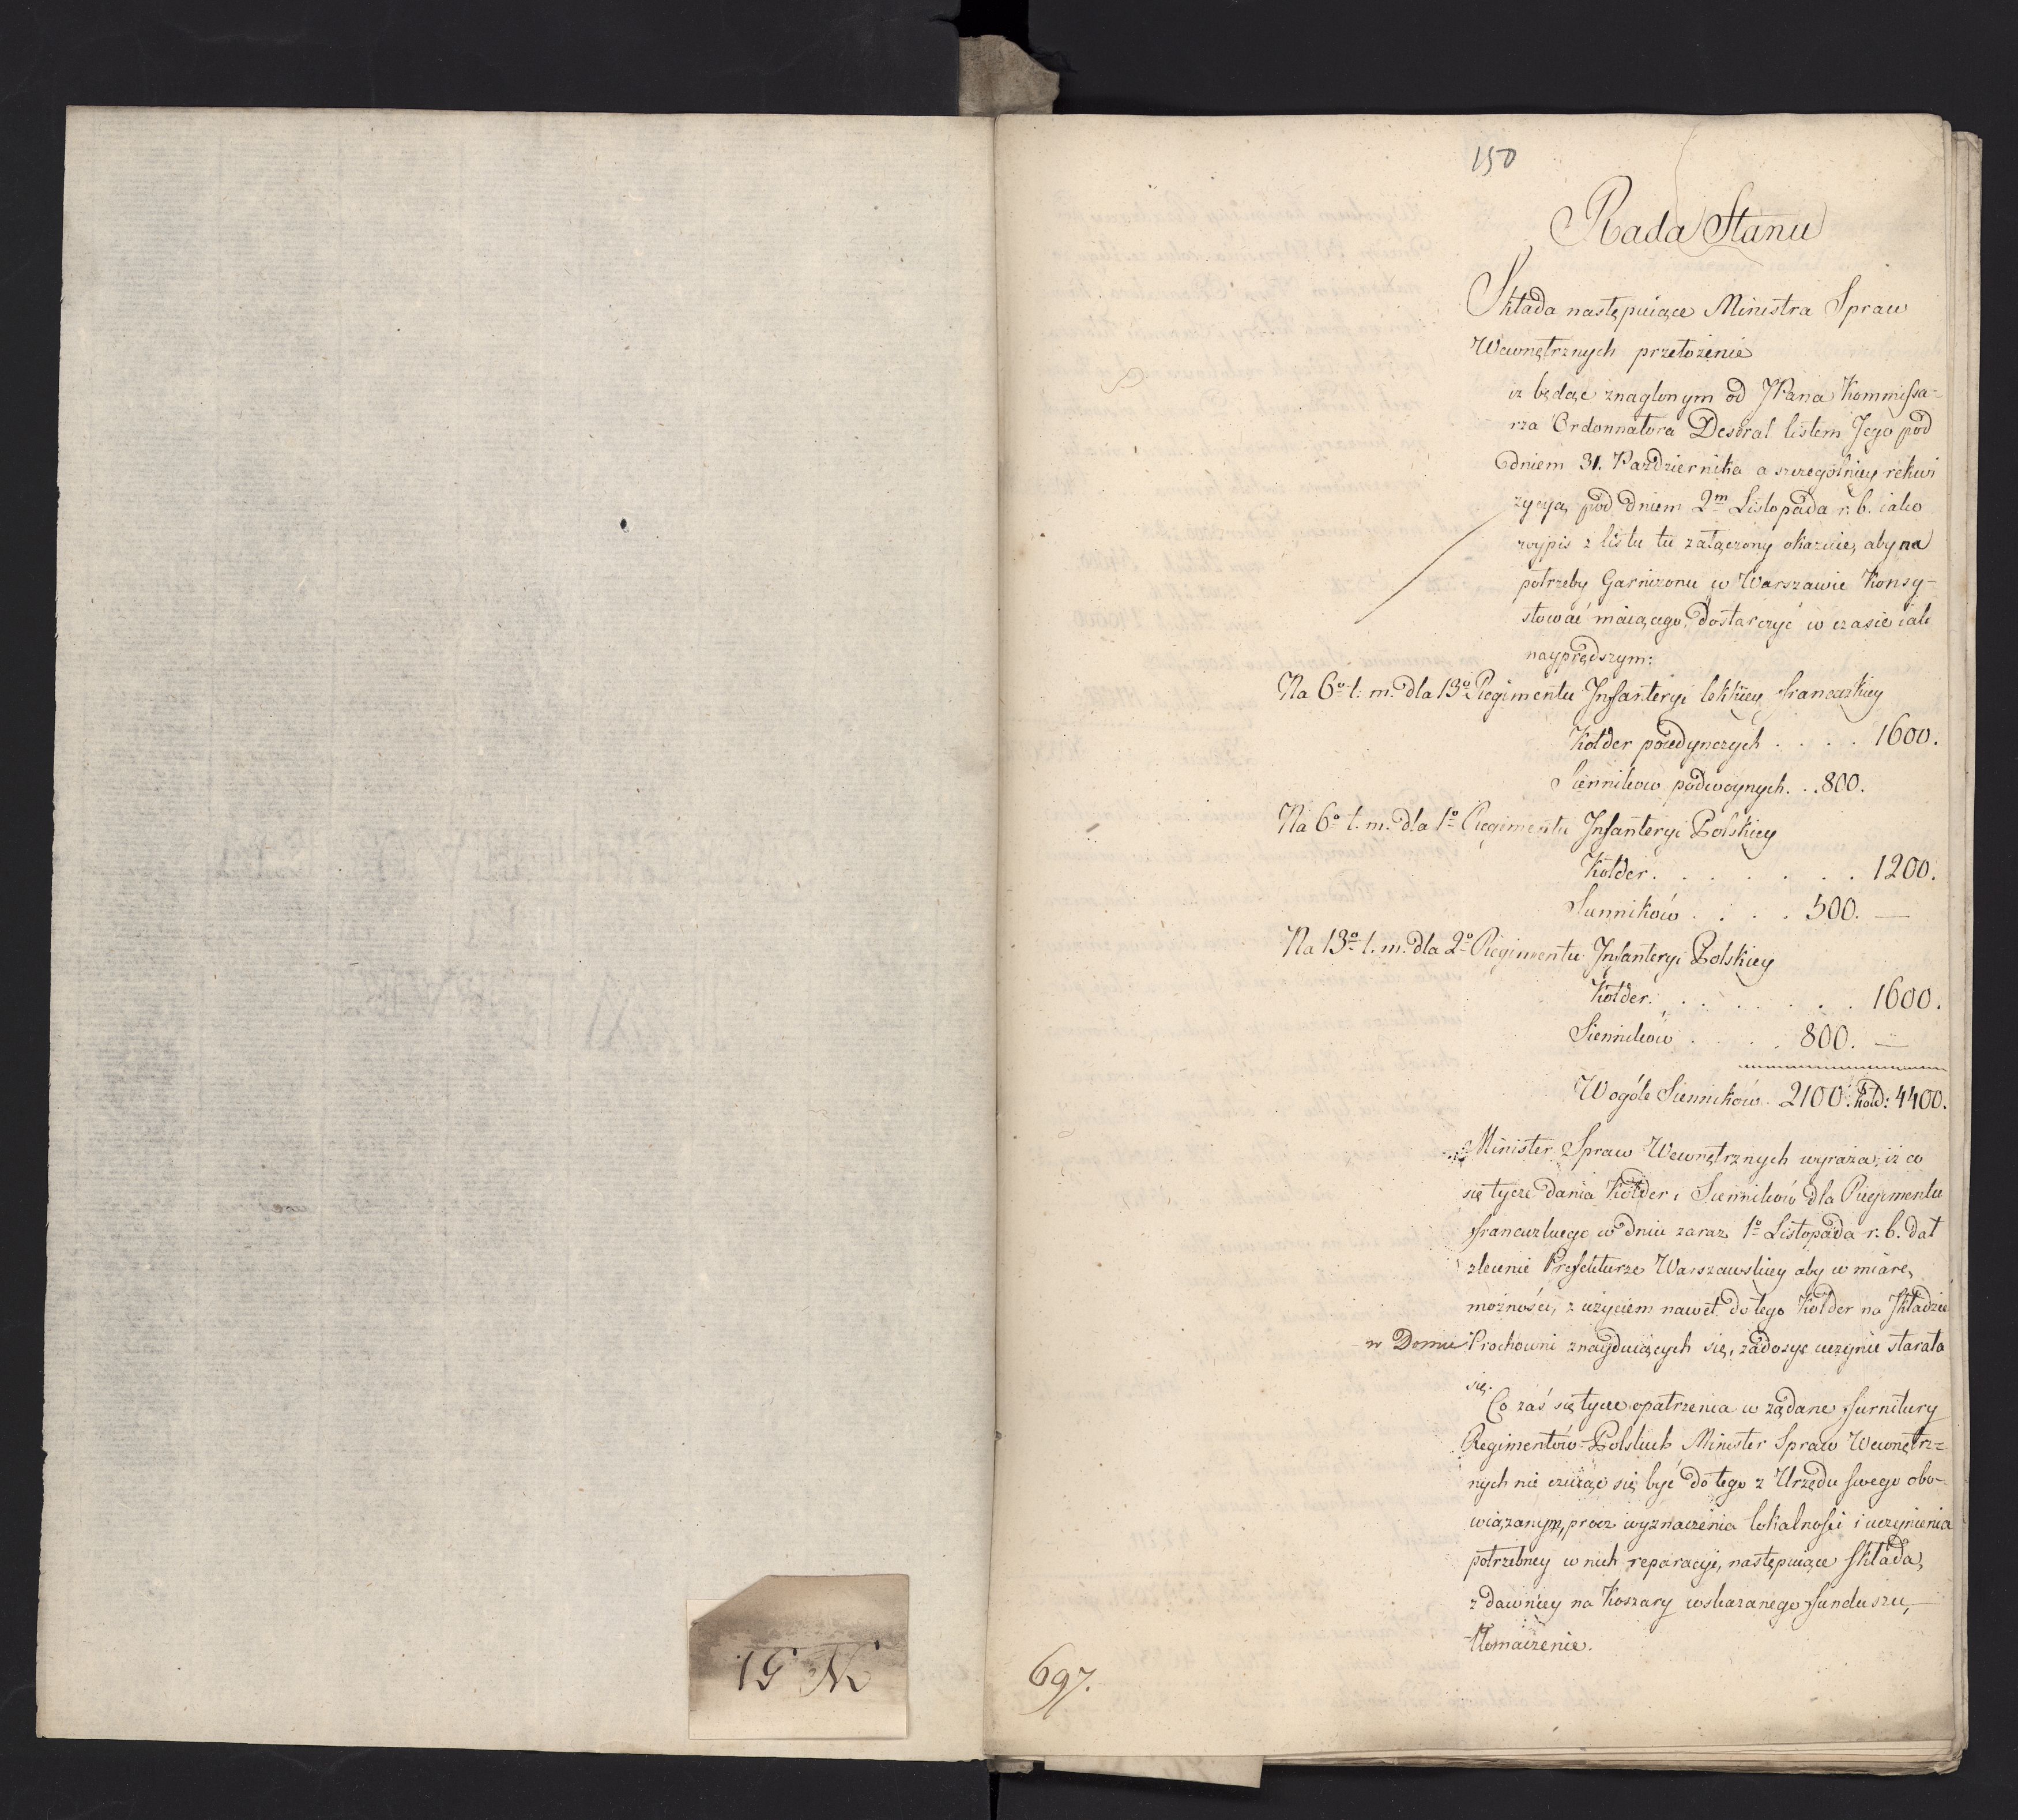 150
Rada Stanu
Składa następuiące Ministra Spraw
Wewnętrznych przełożenie
iż będąc znaglonym od JPana Kommissa-
rza Ordonnatora Desiral listem Jego pod
dniem 31. Października a szczególniey rekwi
zycyą pod dniem 2m Listopada r. b. iako
wypis z listu tu załączony okazuie, aby na
potrzeby Garnizonu w Warszawie Konsy-
stować maiącego, dostarczyć w czasie iak
nayprędszym:
Na 6o t. m. dla 13o Regimentu Infanteryi lekkiey francuzkiey
Kołder poiedynczych . . . . 1600.
Sienników podwoynych. . . 800.
Na 6o t. m. dla 1o Regimentu Infanteryi Polskiey
Kołder. . . . . . . . 1200.
Sienników . . . . 500. —
Na 13o t. m. dla 2o Regimentu Infanteryi Polskiey
Kołder. . . . . . . . 1600.
Sienników . . . . 800. —
Wogóle Sienników. 2100. Kołd: 4400.
Minister Spraw Wewnętrznych wyraża, iż co
się tycze dania Kołder i Sienników dla Regimentu
francuzkiego w dniu zaraz 1o Listopada r. b. dał
zlecenie Prefekturze Warszawskiey aby w miarę
możności, z użyciem nawet do tego Kołder na Składzie
w Domu Prochowni znayduiących się, zadosyć uczynić starała
się.
Co zaś się tycze opatrzenia w żądane furnitury
Regimentów Polskich Minister Spraw Wewnętrz-
nych nie czuiąc się być do tego z Urzędu swego obo-
wiązanym, procz wyznaczenia lokalności i uczynienia
potrzebney w nich reparacyi, następuiące składa,
z dawniey na Koszary wskazanego funduszu,
tłomaczenie.
697.
N 51